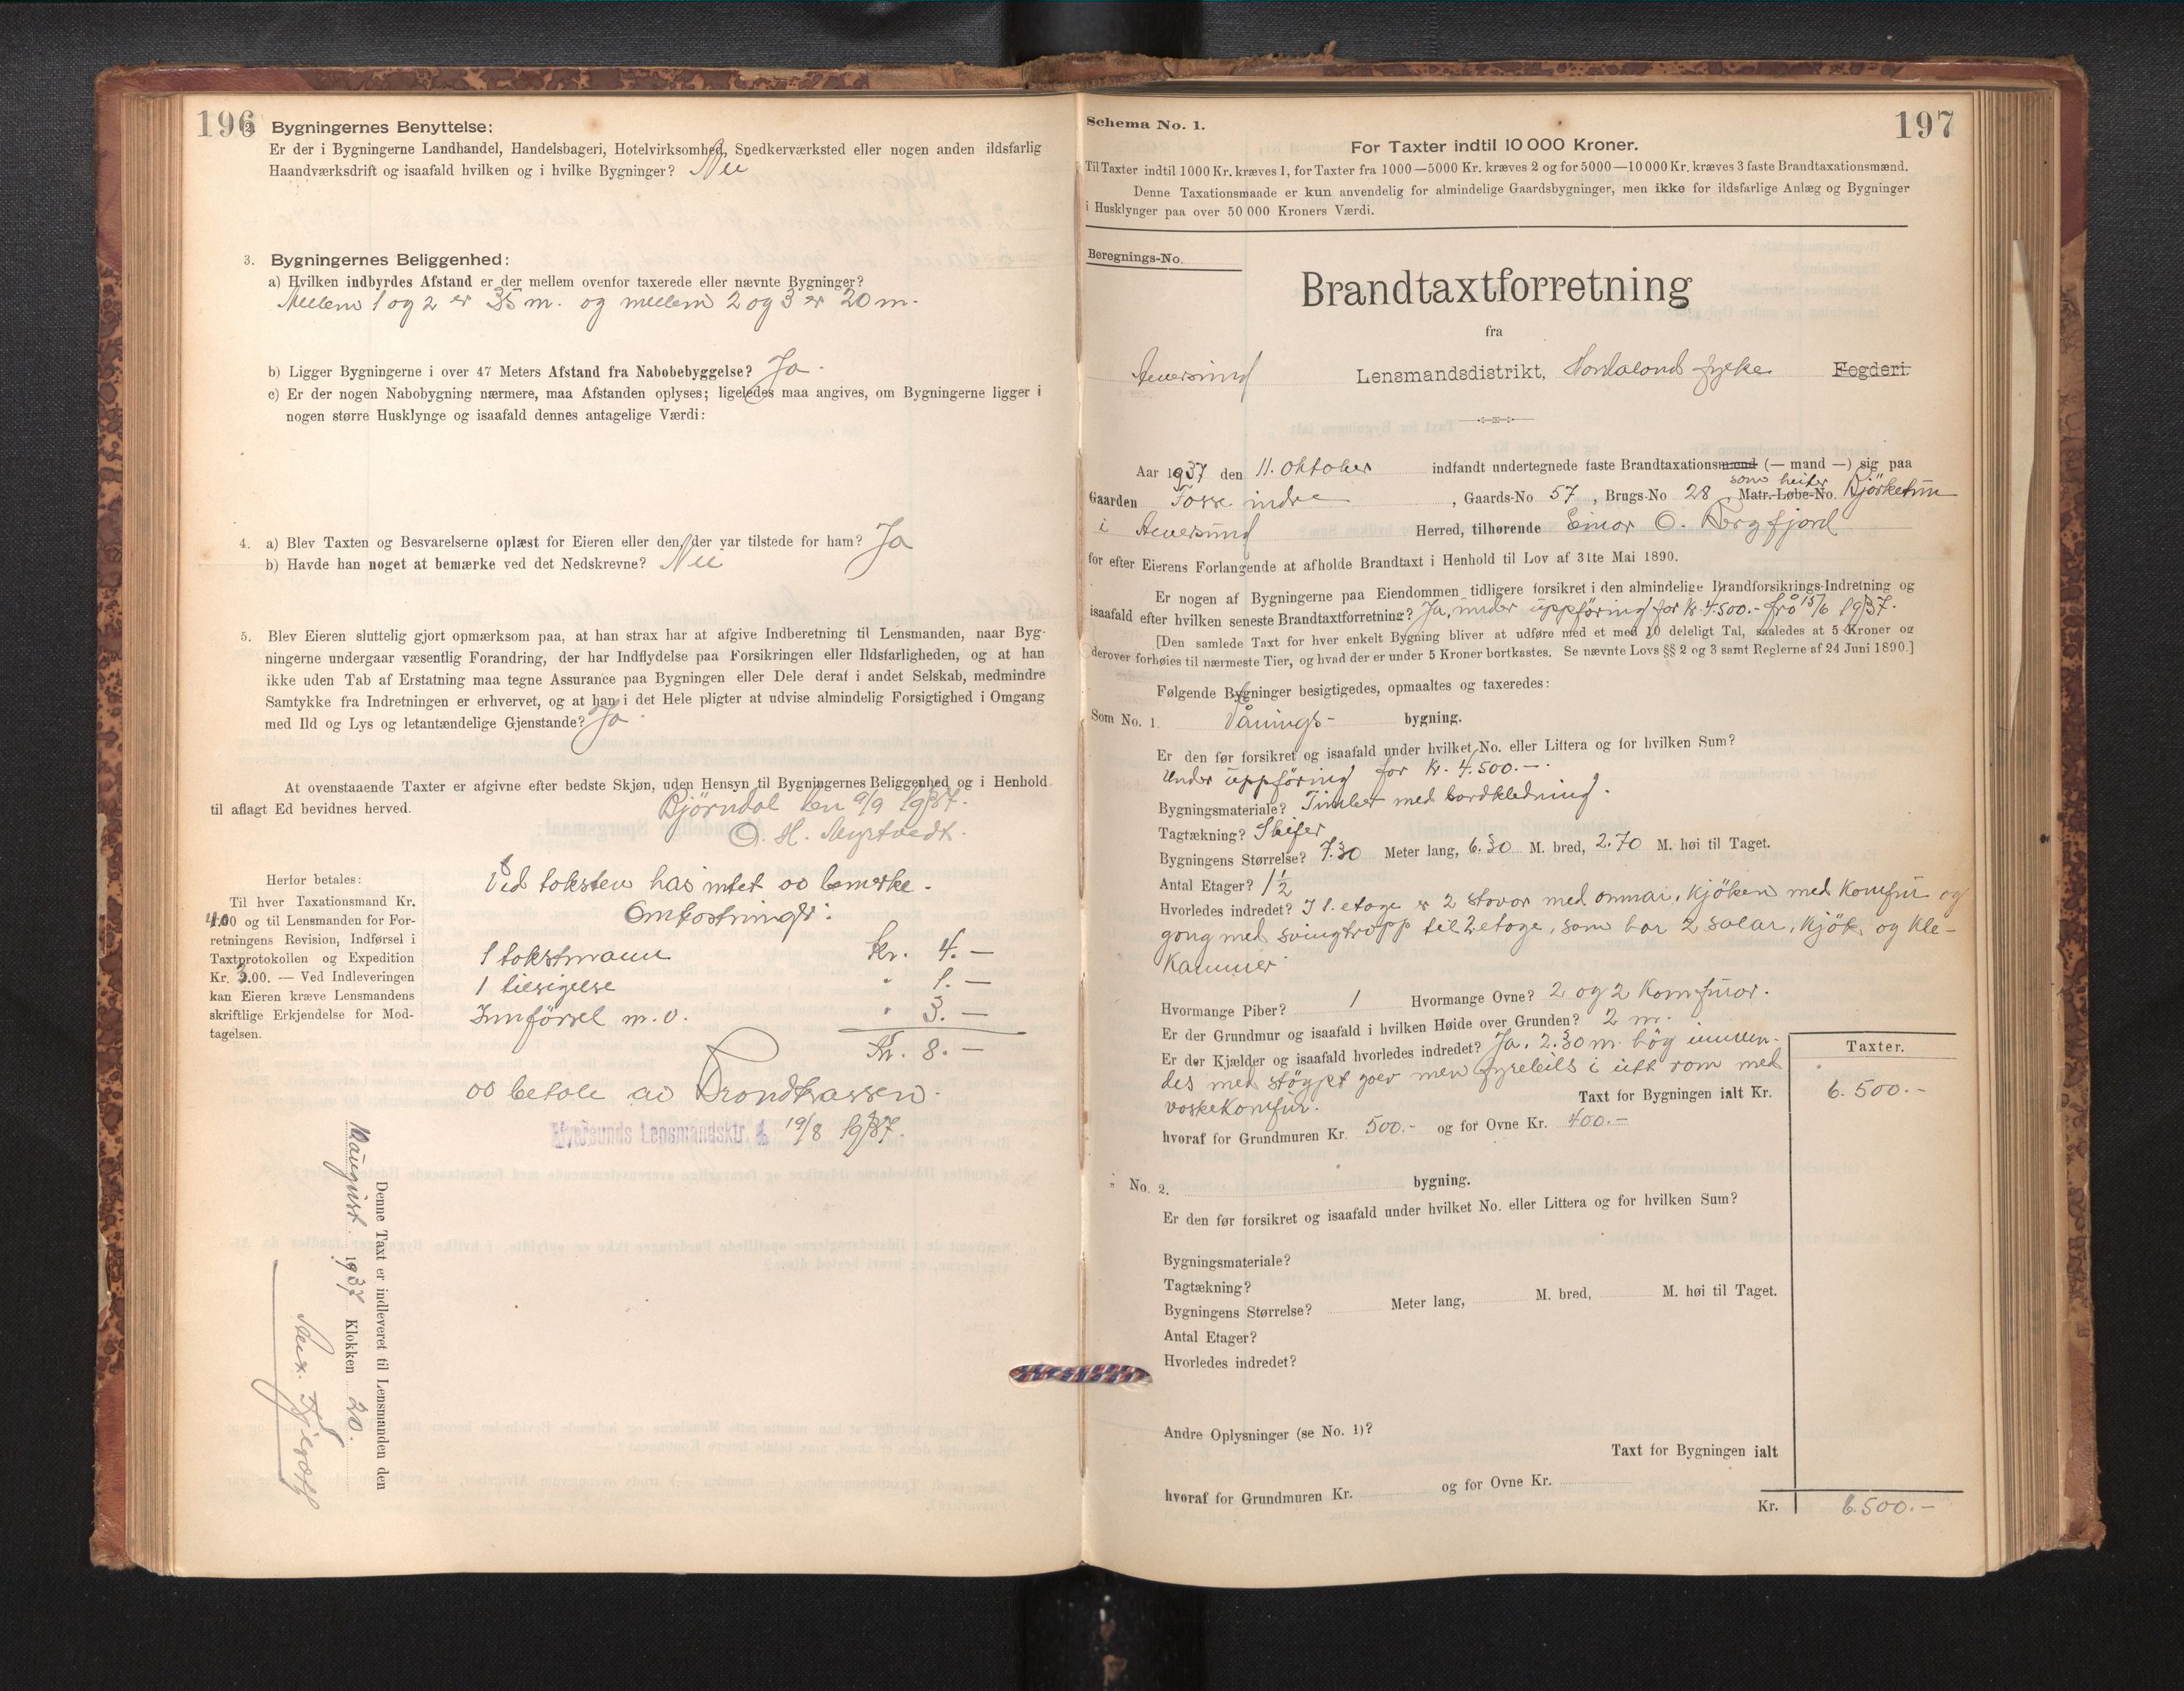 196
2. Bygningernes Benyttelse:
Er der i Bygningerne Landhandel, Handelsbageri, Hotelvirksomhed, Snedkerværksted eller nogen anden ildsfarlig
Haandværksdrift og isaafald hvilken og i hvilke Bygninger? Nei
3. Bygningernes Beliggenhed:
a) Hvilken indbyrdes Afstand er der mellem ovenfor taxerede eller nævnte Bygninger?
Mellem 1 og 2 er 35 m. og mellem 2 og 3 er 20 m.
b) Ligger Bygningerne i over 47 Meters Afstand fra Nabobebyggelse? Ja
c) Er der nogen Nabobygning nærmere, maa Afstanden oplyses; ligeledes maa angives, om Bygningerne ligger i
nogen større Husklynge og isaafald dennes antagelige Værdi:
4. a) Blev Taxten og Besvarelserne oplæst for Eieren eller den, der var tilstede for ham? Ja
b) Havde han noget at bemærke ved det Nedskrevne? Nei
5. Blev Eieren sluttelig gjort opmærksom paa, at han strax har at afgive Indberetning til Lensmanden, naar Byg-
ningerne undergaar væsentlig Forandring, der har Indflydelse paa Forsikringen eller Ildsfarligheden, og at han
ikke uden Tab af Erstatning maa tegne Assurance paa Bygningen eller Dele deraf i andet Selskab, medmindre
Samtykke fra Indretningen er erhvervet, og at han i det Hele pligter at udvise almindelig Forsigtighed i Omgang
med Ild og Lys og letantændelige Gjenstande? Ja
At ovenstaaende Taxter er afgivne efter bedste Skjøn, uden Hensyn til Bygningernes Beliggenhed og i Henhold
til aflagt Ed bevidnes herved.
Björndal den 9/9 1937.
O. H. Myrtvedt.
Herfor betales:
Til hver Taxationsmand Kr.
4.00 og til Lensmanden for For-
retningens Revision, Indførsel i
Taxtprotokollen og Expedition
Kr. 3.00. — Ved Indleveringen
kan Eieren kræve Lensmandens
skriftlige Erkjendelse for Mod-
tagelsen.
Ved taksten has intet å bemerke.
Omkostninger:
1 takstmann Kr. 4.—
1 tilsigelse " 1.—
Innförsel m.v. " 3.—
Kr. 8.—
å betale av Brandkassen.
Alversunds Lensmandsktr. 19/8 1937.
Denne Taxt er indleveret til Lensmanden den
10 august 1937 Klokken 20.
197
Schema No. 1.
For Taxter indtil 10 000 Kroner.
Til Taxter indtil 1000 Kr. kræves 1, for Taxter fra 1000—5000 Kr. kræves 2 og for 5000—10 000 Kr. kræves 3 faste Brandtaxationsmænd.
Denne Taxationsmaade er kun anvendelig for almindelige Gaardsbygninger, men ikke for ildsfarlige Anlæg og Bygninger
i Husklynger paa over 50 000 Kroners Værdi.
Beregnings-No.
Brandtaxtforretning
fra
Alversund Lensmandsdistrikt, Hordaland fylke Fogderi.
Aar 1937 den 11. oktober indfandt undertegnede faste Brandtaxationsmænd (— mand —) sig paa
Gaarden Fosse indre, Gaards-No 57, Brugs-No 28, som heiter Matr.-Løbe-No. Bjørketun
i Alversund Herred, tilhørende Einar O. Bergfjord
for efter Eierens Forlangende at afholde Brandtaxt i Henhold til Lov af 31te Mai 1890.
Er nogen af Bygningerne paa Eiendommen tidligere forsikret i den almindelige Brandforsikrings-Indretning og
isaafald efter hvilken seneste Brandtaxtforretning? Ja, under uppföring for kr. 4.500.- frå 15/6 1937.
[Den samlede Taxt for hver enkelt Bygning bliver at udføre med et med 10 deleligt Tal, saaledes at 5 Kroner og
derover forhøies til nærmeste Tier, og hvad der er under 5 Kroner bortkastes. Se nævnte Lovs §§ 2 og 3 samt Reglerne af 24 Juni 1890.]
Følgende Bygninger besigtigedes, opmaaltes og taxeredes:
Som No. 1. Vånings- bygning.
Er den før forsikret og isaafald under hvilket No. eller Littera og for hvilken Sum?
Under uppföring for Kr. 4.500.—.
Bygningsmateriale? Timber med bordkledning.
Tagtækning? Skifer
Bygningens Størrelse? 7.30 Meter lang, 6.30 M. bred, 2.70 M. høi til Taget.
Antal Etager? 1½
Hvorledes indredet? I 1. etage er 2 stovor med omnar, kjöken med komfur og
gang med svingtrapp til 2 etage, som har 2 salar, kjök. og kle-
kammer
Hvormange Piber? 1 Hvormange Ovne? 2 og 2 komfuror.
Er der Grundmur og isaafald i hvilken Høide over Grunden? 2 m.
Er der Kjælder og isaafald hvorledes indredet? Ja. 2.30 m. høg innven-
des med støypt golv men fyreleils i eitt rom med
vaskekomfur.
Taxter.
Taxt for Bygningen ialt Kr. 6.500.—
hvoraf for Grundmuren Kr. 500.- og for Ovne Kr. 400.—
" No. 2. bygning.
Er den før forsikret og isaafald under hvilket No. eller Littera og for hvilken Sum?
Bygningsmateriale?
Tagtækning?
Bygningens Størrelse? Meter lang, M. bred, M. høi til Taget.
Antal Etager?
Hvorledes indredet?
Andre Oplysninger (se No. 1)?
Taxt for Bygningen ialt
hvoraf for Grundmuren Kr. og for Ovne Kr.
Kr. 6.500.—